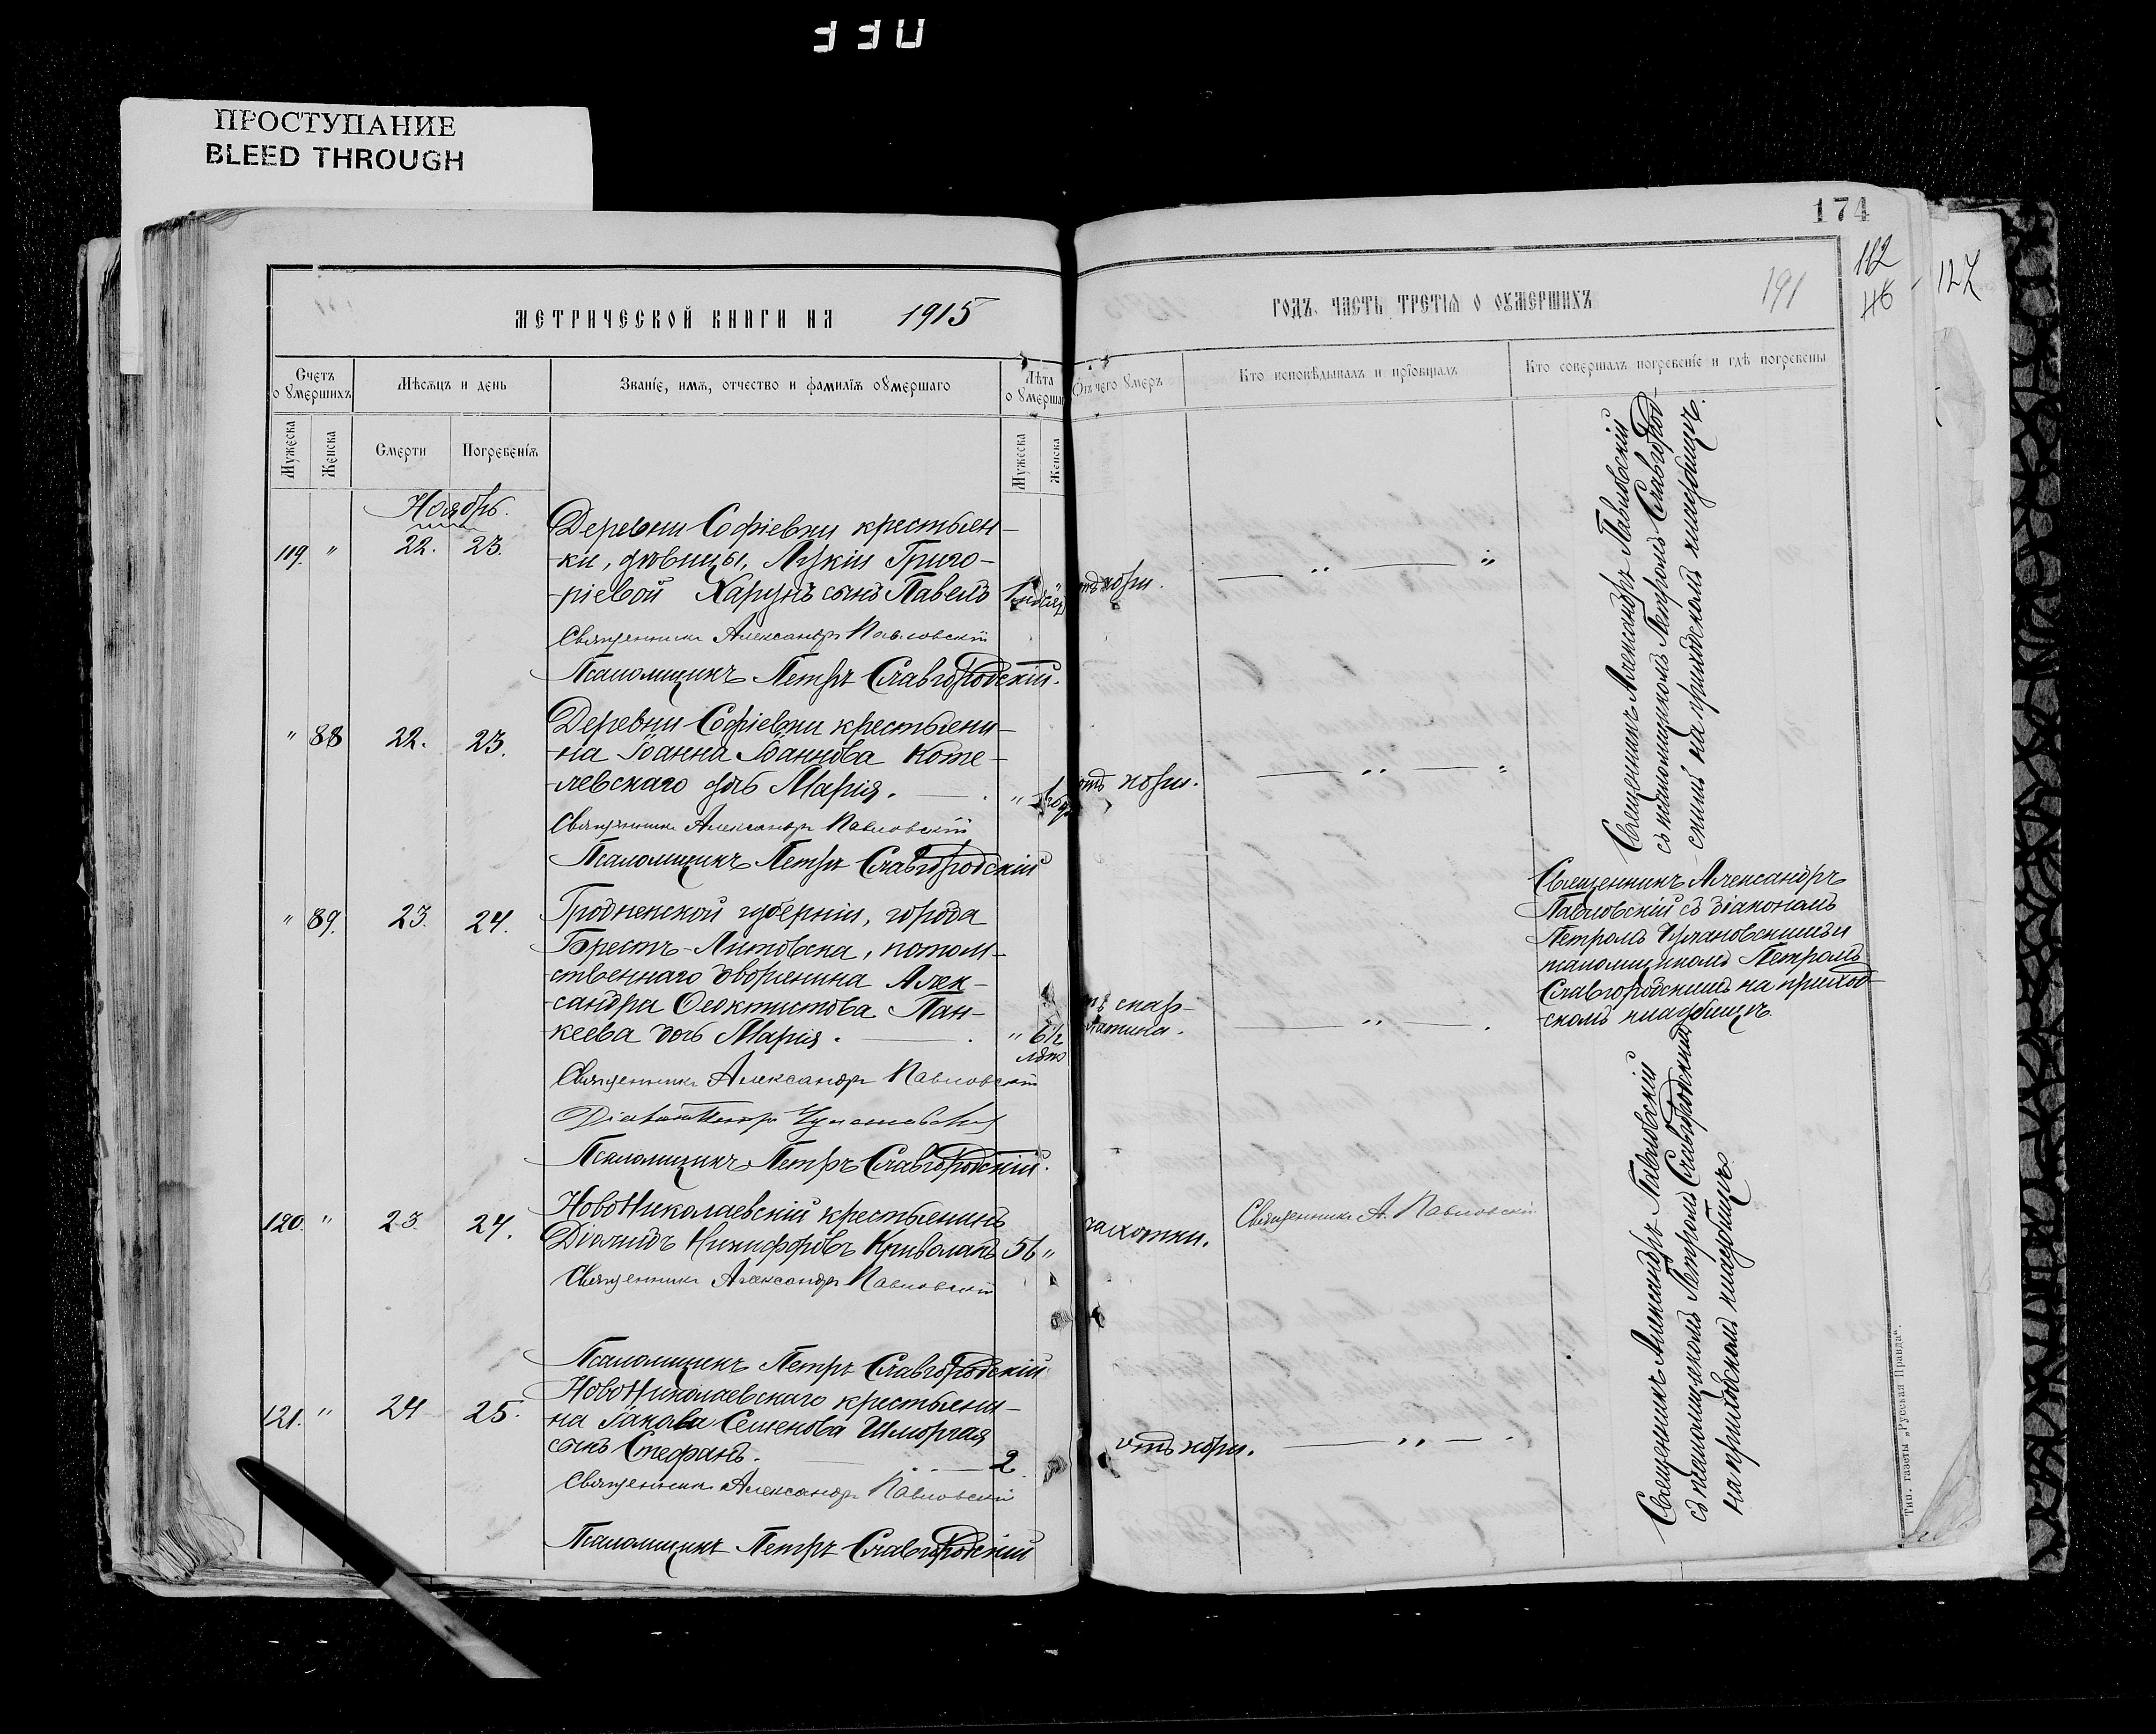 ПРОСТУПАНИЕ
BLEED THROUGH
174
112
46 - 127
МЕТРИЧЕСКОЙ КНИГИ НА 1915
ГОДЪ, ЧАСТЬ ТРЕТІЯ О ОУМЕРШИХЪ
191
Счетъ о Умершихъ
Мѣсяцъ и день
Званіе, имя, отчество и фамилія оумершаго
Лѣта о Умерша
Отъ чего Умеръ
Кто исповѣдывалъ и пріобщалъ
Кто совершалъ погребеніе и гдѣ погребены
Мужеска
Женска
Смерти
Погребенія
Мужеска
Женска
Ноябрь.
119. " 22. 23.
Деревни Софіевки крестьян-
ки, дѣвицы, Лукіи Григо-
ріевой Харунъ сынъ Павелъ
отъ кори.
Священникъ Александръ Павловскій
Псаломщикъ Петръ Славгородскій.
" 88 22. 23.
Деревни Софіевки крестьяни-
на Іоанна Іоаннова Коте-
левскаго дочь Марія.
" 1 год
отъ кори.
Священникъ Александръ Павловскій
Псаломщикъ Петръ Славгородскій
Священникъ Александръ Павловскій
съ псаломщикомъ Петромъ Славгород-
скимъ на приходскомъ кладбищѣ.
" 89. 23. 24.
Гродненской губерніи, города
Брестъ-Литовска, потом-
ственнаго дворянина Алек-
сандра Феоктистова Пан-
кеева дочь Марія.
" 6½ лѣт
тъ скар-
латина.
Священникъ Александръ
Павловскій съ діакономъ
Петромъ Чулановскимъ и
псаломщикомъ Петромъ
Славгородскимъ на приход-
скомъ кладбищѣ.
Священникъ Александръ Павловскій
Діаконъ Петръ Чулановскій
Псаломщикъ Петръ Славгородскій.
120. " 23. 24.
НовоНиколаевскій крестьянинъ
Діомидъ Никифоровъ Криволапъ 56 "
чахотки.
Священникъ А. Павловскій
Священникъ Александръ Павловскій
Псаломщикъ Петръ Славгородскій
121. " 24 25.
НовоНиколаевскаго крестьяни-
на Іакова Семенова Шморгая
сынъ Стефанъ. 2
отъ кори.
Священникъ Александръ Павловскій
Псаломщикъ Петръ Славгородскій
Священникъ Александръ Павловскій
съ псаломщикомъ Петромъ Славгородскимъ
на приходскомъ кладбищѣ
Тип. газеты „Русская Правда“.